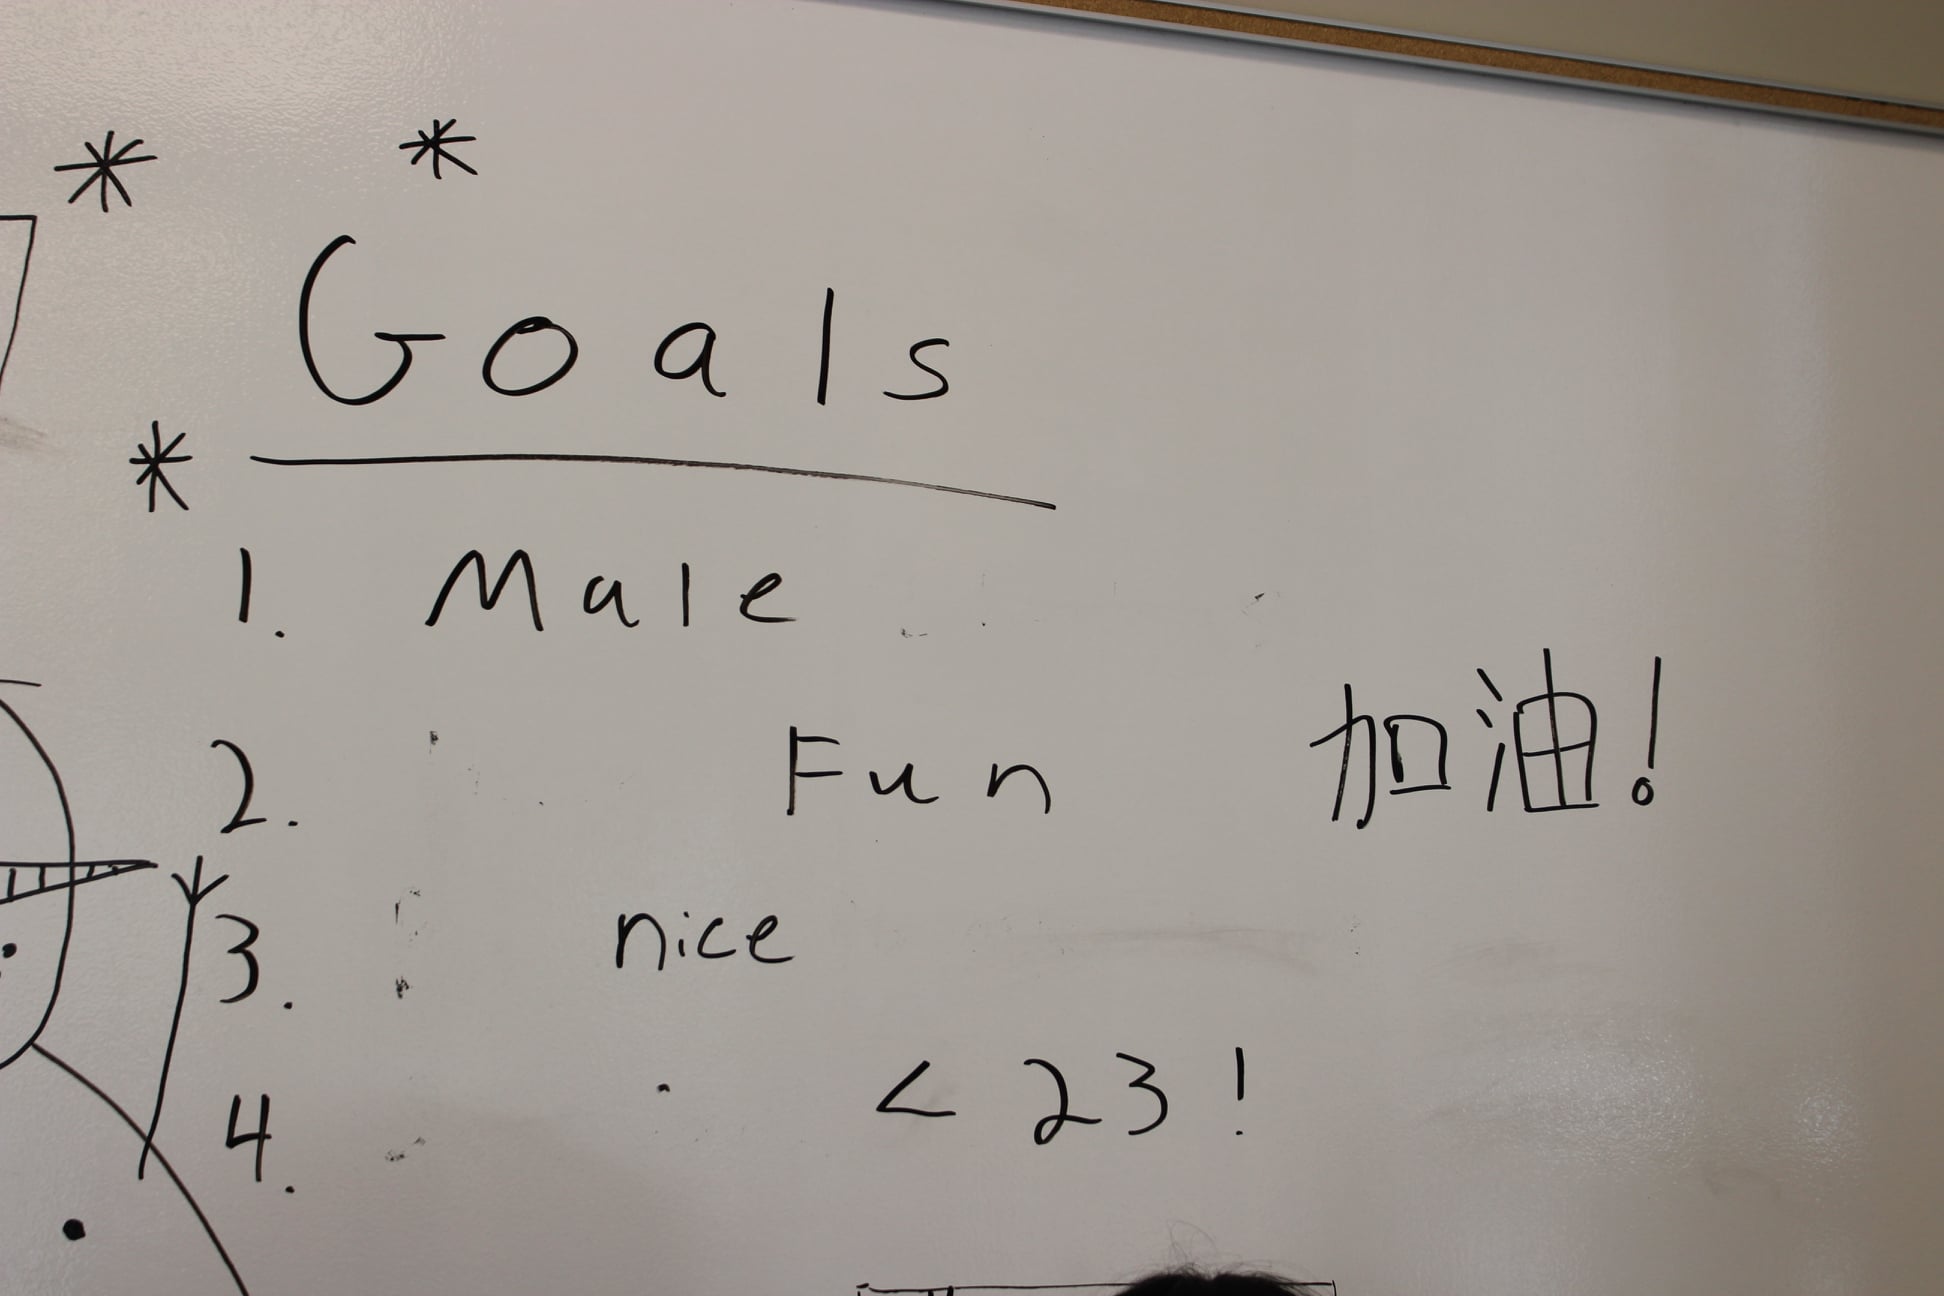 Goals
1. Male
2. Fun 加油!
3. nice
4. < 23!